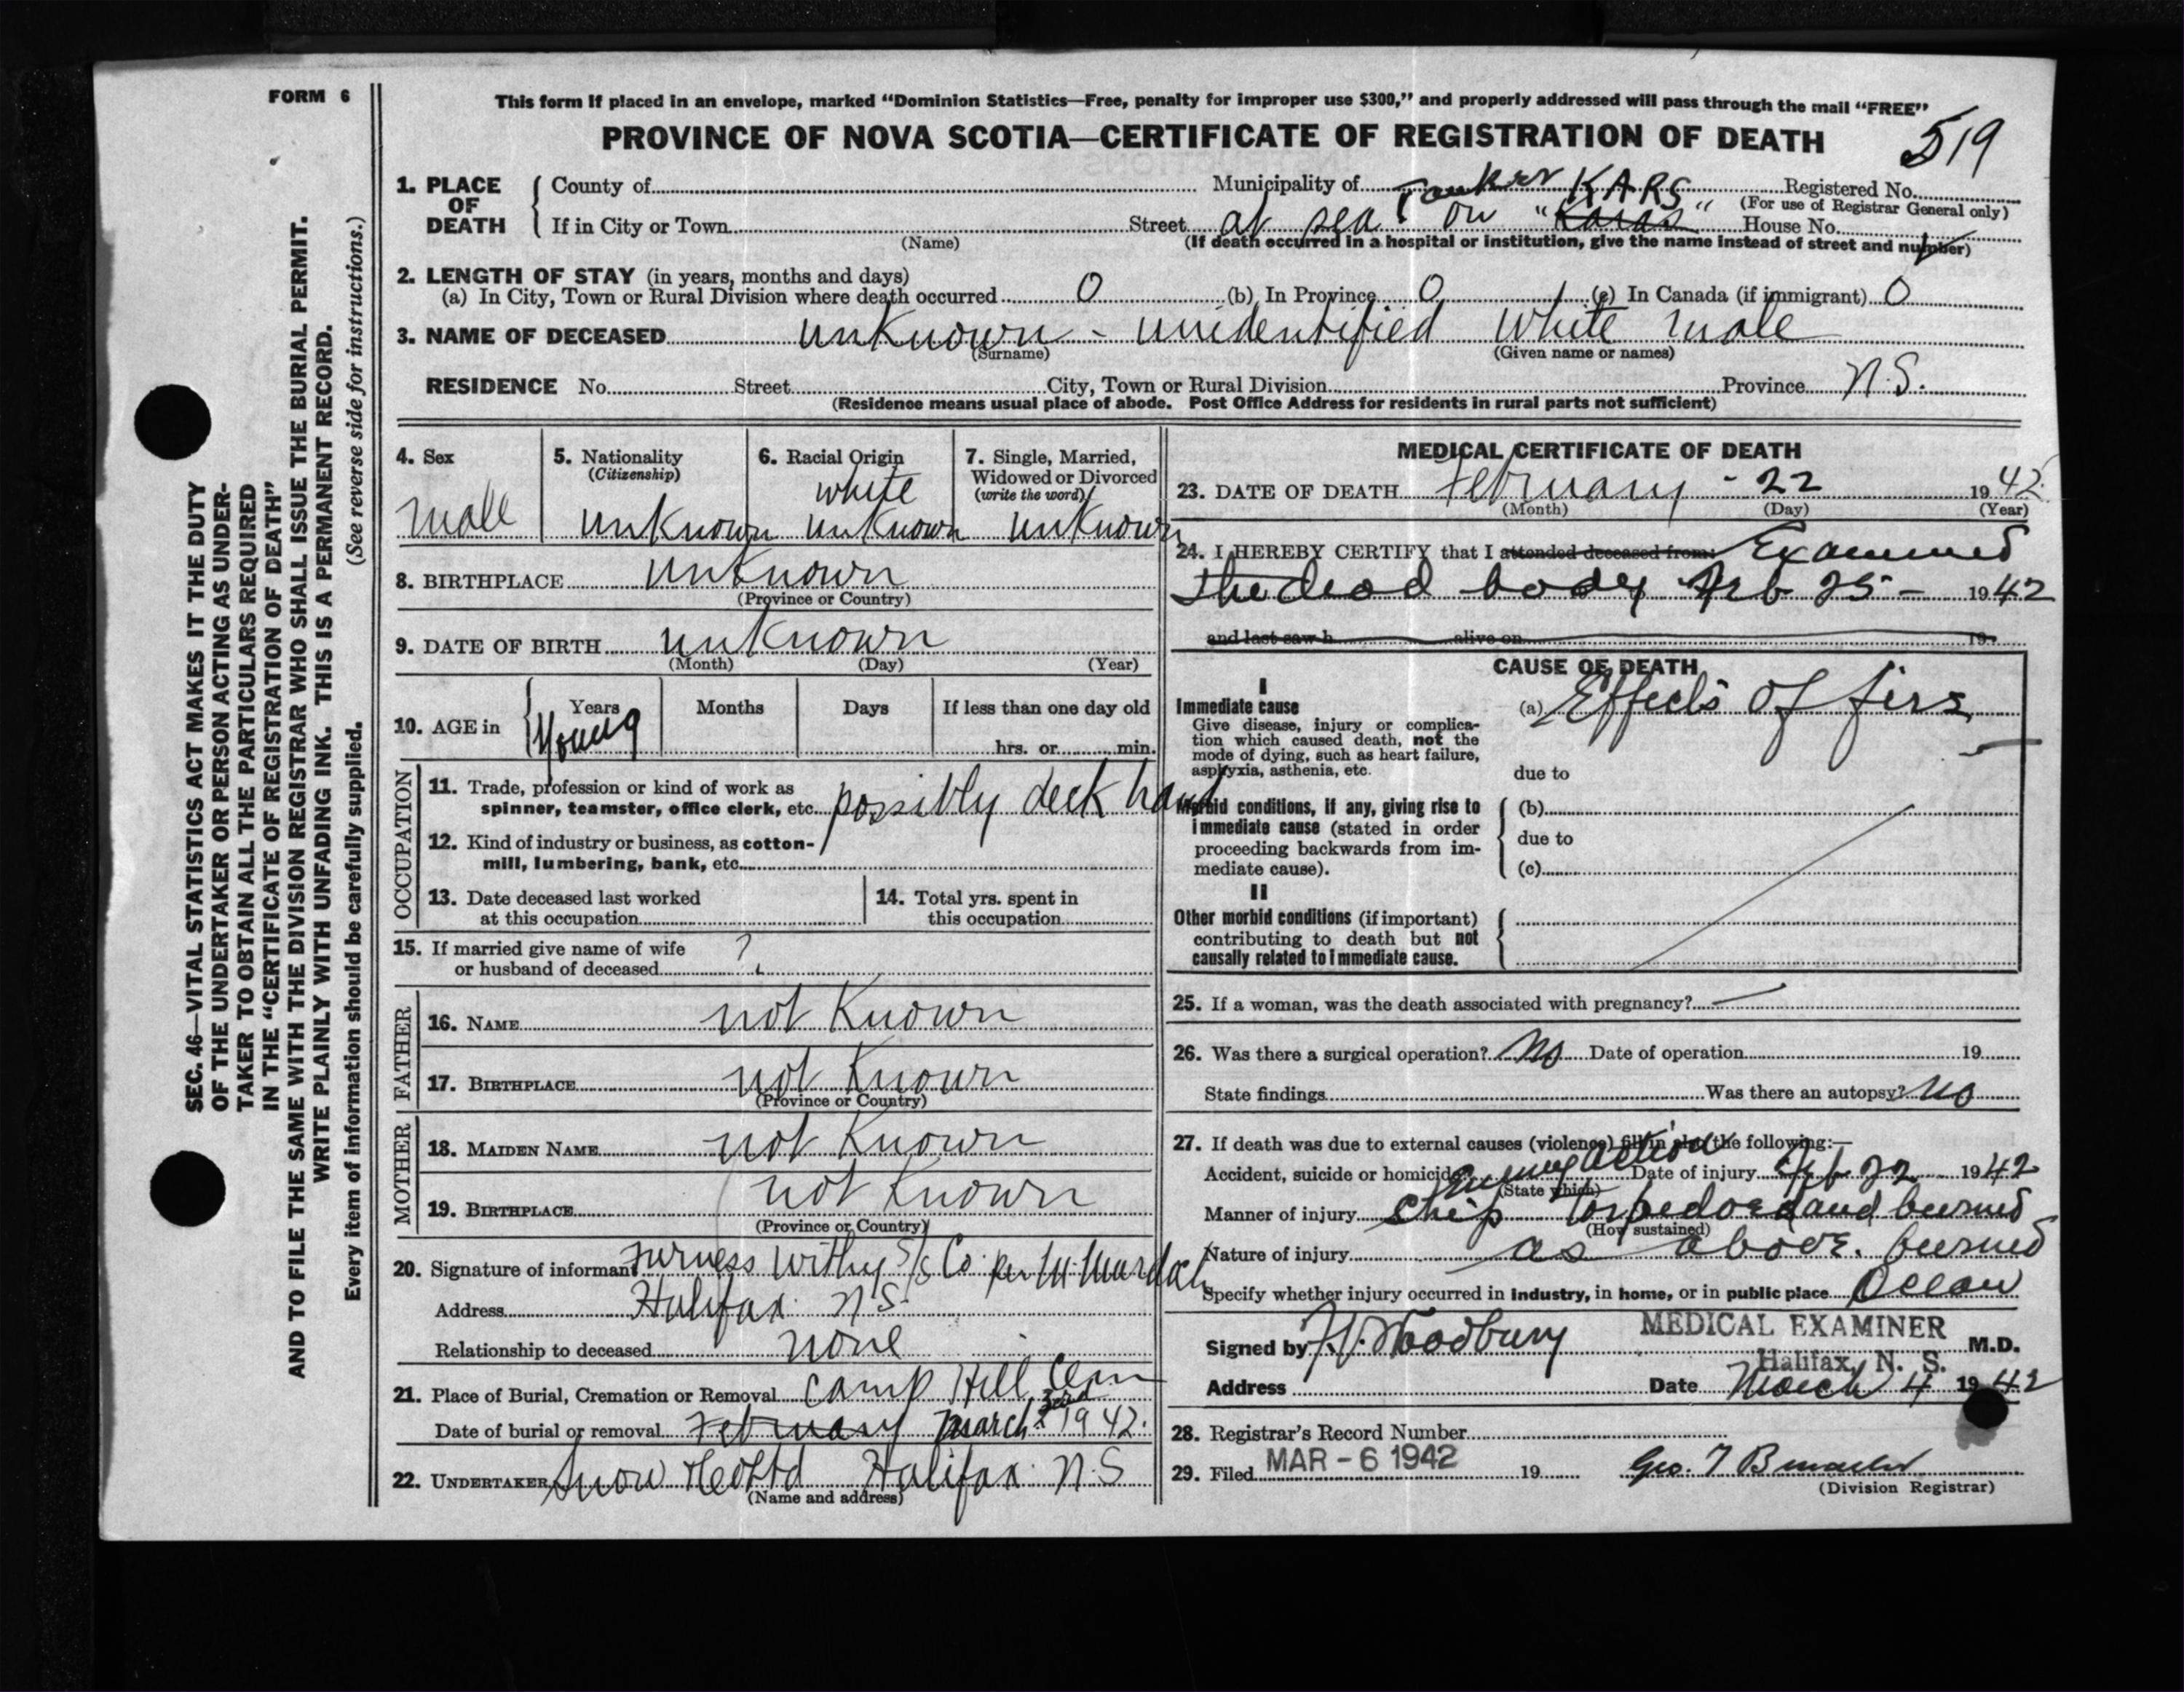 FORM 6
This form if placed in an envelope, marked “Dominion Statistics—Free, penalty for improper use $300,” and properly addressed will pass through the mail “FREE”
PROVINCE OF NOVA SCOTIA—CERTIFICATE OF REGISTRATION OF DEATH
519
1. PLACE OF DEATH
County of
Municipality of Tanker KARS
Registered No.
(For use of Registrar General only)
If in City or Town
(Name)
Street at sea on “Karas”
House No.
(If death occurred in a hospital or institution, give the name instead of street and number)
2. LENGTH OF STAY (in years, months and days)
(a) In City, Town or Rural Division where death occurred 0 (b) In Province 0 (c) In Canada (if immigrant) 0
3. NAME OF DECEASED unKnown - unidentified white male
(Surname) (Given name or names)
RESIDENCE No. Street City, Town or Rural Division Province N.S.
(Residence means usual place of abode. Post Office Address for residents in rural parts not sufficient)
4. Sex
male
5. Nationality
(Citizenship)
unKnown
6. Racial Origin
white
unKnown
7. Single, Married,
Widowed or Divorced
(write the word)
unKnown
8. BIRTHPLACE unKnown
(Province or Country)
9. DATE OF BIRTH unKnown
(Month) (Day) (Year)
10. AGE in
Years
Months
Days
If less than one day old
Young
hrs. or min.
OCCUPATION
11. Trade, profession or kind of work as
spinner, teamster, office clerk, etc. possibly deck hand
12. Kind of industry or business, as cotton-
mill, lumbering, bank, etc.
13. Date deceased last worked
at this occupation
14. Total yrs. spent in
this occupation
15. If married give name of wife
or husband of deceased ?
FATHER
16. NAME not Known
17. BIRTHPLACE not Known
(Province or Country)
MOTHER
18. MAIDEN NAME not Known
19. BIRTHPLACE not Known
(Province or Country)
20. Signature of informant Furness Withy S/S Co. per M. Murdoch
Address Halifax N.S.
Relationship to deceased none
21. Place of Burial, Cremation or Removal Camp Hill Cem
Date of burial or removal February March 3rd 1942.
22. UNDERTAKER Snow & Co Ltd Halifax N.S
(Name and address)
MEDICAL CERTIFICATE OF DEATH
23. DATE OF DEATH February - 22 1942
(Month) (Day) (Year)
24. I HEREBY CERTIFY that I attended deceased from: Examined
the dead body Feb 25 - 1942
and last saw h alive on 19
CAUSE OF DEATH
I
Immediate cause
Give disease, injury or complica-
tion which caused death, not the
mode of dying, such as heart failure,
asphyxia, asthenia, etc.
(a) Effects of fire
due to
Morbid conditions, if any, giving rise to
immediate cause (stated in order
proceeding backwards from im-
mediate cause).
(b)
due to
(c)
II
Other morbid conditions (if important)
contributing to death but not
causally related to immediate cause.
25. If a woman, was the death associated with pregnancy? —
26. Was there a surgical operation? No Date of operation 19
State findings Was there an autopsy? No
27. If death was due to external causes (violence) fill in also the following:—
Accident, suicide or homicide Enemy action Date of injury Feb 22 1942
(State which)
Manner of injury Ship Torpedoed and burned
(How sustained)
Nature of injury as above. burned
Specify whether injury occurred in industry, in home, or in public place Ocean
Signed by Woodbury MEDICAL EXAMINER M.D.
Halifax, N. S.
Address Date March 4 1942
28. Registrar's Record Number
29. Filed MAR - 6 1942 19
(Division Registrar)
SEC. 46—VITAL STATISTICS ACT MAKES IT THE DUTY
OF THE UNDERTAKER OR PERSON ACTING AS UNDER-
TAKER TO OBTAIN ALL THE PARTICULARS REQUIRED
IN THE “CERTIFICATE OF REGISTRATION OF DEATH”
AND TO FILE THE SAME WITH THE DIVISION REGISTRAR WHO SHALL ISSUE THE BURIAL PERMIT.
WRITE PLAINLY WITH UNFADING INK. THIS IS A PERMANENT RECORD.
Every item of information should be carefully supplied. (See reverse side for instructions.)